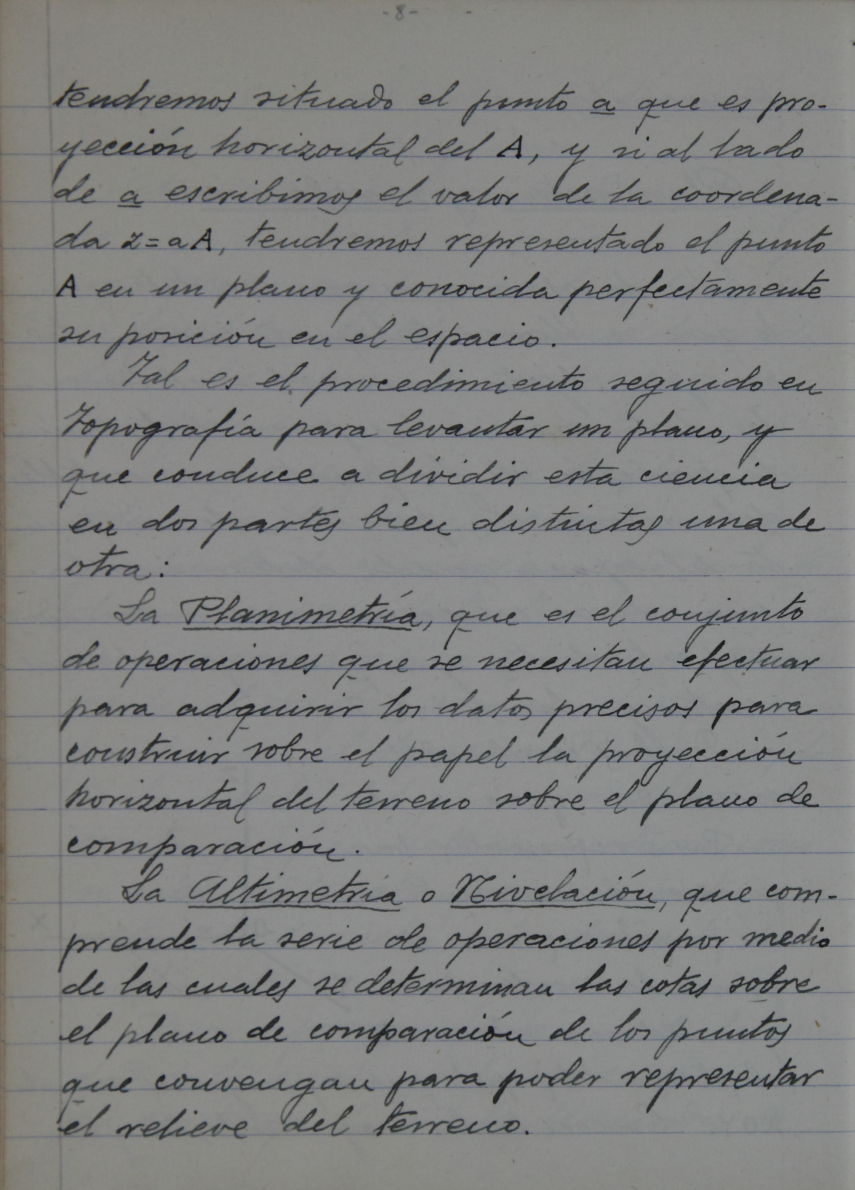 -8-
tendremos situado el punto a que es pro-
yección horizontal del A, y si al lado
de a escribimos el valor de la coordena-
da z=aA, tendremos representado el punto
A en un plano y conocida perfectamente
su posición en el espacio.
Tal es el procedimiento seguido en
Topografía para levantar un plano, y
que conduce a dividir esta ciencia
en dos partes bien distintas una de
otra:
La Planimetría, que es el conjunto
de operaciones que se necesitan efectuar
para adquirir los datos precisos para
construir sobre el papel la proyección
horizontal del terreno sobre el plano de
comparación.
La Altimetría o Nivelación, que com-
prende la serie de operaciones por medio
de las cuales se determinan las cotas sobre
el plano de comparación de los puntos
que convengan para poder representar
el relieve del terreno.